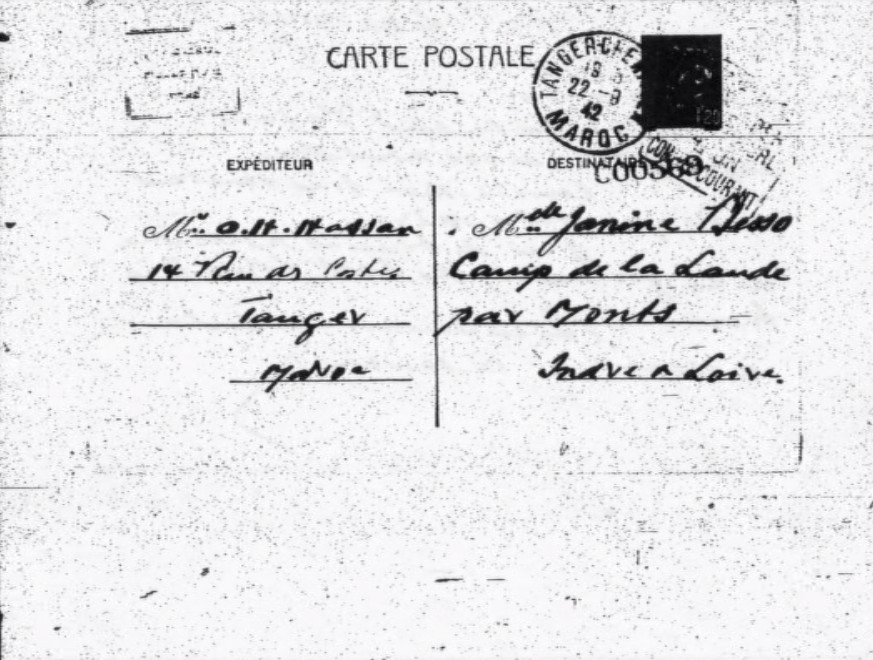 CARTE POSTALE
TANGER-CHE
19
22 - 9
42
MAROC
120
EXPÉDITEUR
DESTINATAIRE
C00569
COURANT
O.H. Hassan
14 Rue des Postes
Tanger
Maroc
Janine Besso
Camp de la Lande
par Monts
Indre et Loire.